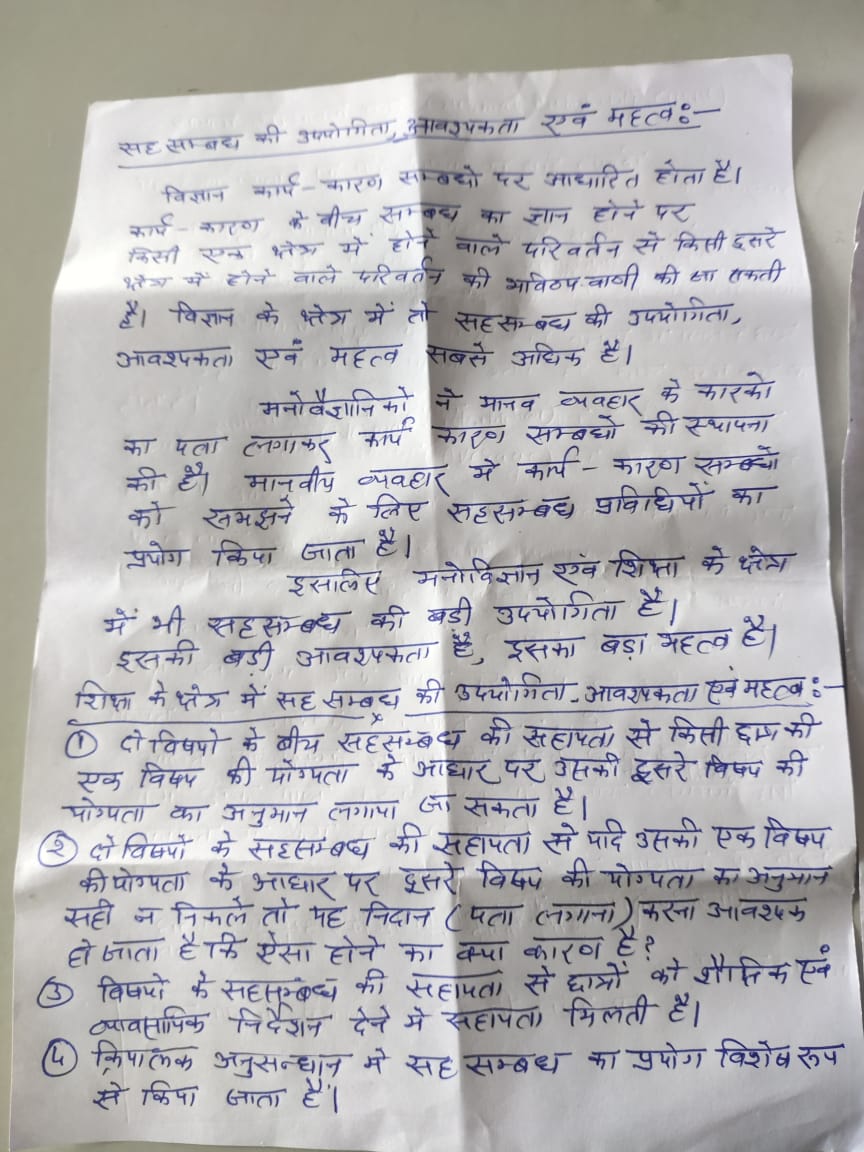 सह सम्बन्ध की उपयोगिता, आवश्यकता एवं महत्व :-
विज्ञान कार्य - कारण सम्बन्धो पर आधारित होता है।
कार्य - कारण के बीच सम्बन्ध का ज्ञान होने पर
किसी एक क्षेत्र में होने वाले परिवर्तन से किसी दूसरे
क्षेत्र में होने वाले परिवर्तन की भविष्यवाणी की जा सकती
है। विज्ञान के क्षेत्र में तो सहसम्बन्ध की उपयोगिता,
आवश्यकता एवं महत्व सबसे अधिक है।
मनोवैज्ञानिको ने मानव व्यवहार के कारको
का पता लगाकर कार्य कारण सम्बन्धो की स्थापना
की है। मानवीय व्यवहार मे कार्य - कारण सम्बन्धो
को समझने के लिए सहसम्बन्ध प्रविधियों का
प्रयोग किया जाता है।
इसलिए मनोविज्ञान एवं शिक्षा के क्षेत्र
में भी सहसम्बन्ध की बड़ी उपयोगिता है।
इसकी बड़ी आवश्यकता है, इसका बड़ा महत्व है।
शिक्षा के क्षेत्र में सह सम्बन्ध की उपयोगिता - आवश्यकता एवं महत्व :-
① दो विषयो के बीच सहसम्बन्ध की सहायता से किसी छात्र की
एक विषय की योग्यता के आधार पर उसकी दूसरे विषय की
योग्यता का अनुमान लगाया जा सकता है।
② दो विषयो के सहसम्बन्ध की सहायता से यदि उसकी एक विषय
की योग्यता के आधार पर दूसरे विषय की योग्यता का अनुमान
सही न निकले तो यह निदान (पता लगाना) करना आवश्यक
हो जाता है कि ऐसा होने का क्या कारण है?
③ विषयो के सहसम्बन्ध की सहायता से छात्रों को शैक्षिक एवं
व्यावसायिक निर्देशन देने मे सहायता मिलती है।
④ क्रियात्मक अनुसन्धान मे सह सम्बन्ध का प्रयोग विशेष रूप
से किया जाता है।